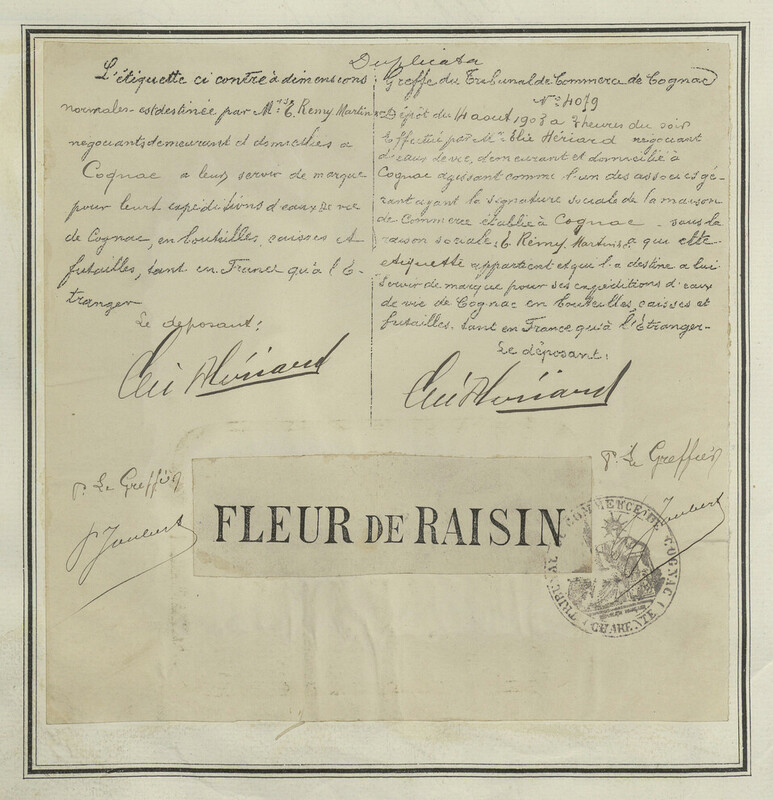 Duplicata
L'étiquette ci contre à dimensions
normales est destinée par Mrs E. Remy Martin &
negouants demeurant et domiciliés a
Cognac a leur servir de marque
pour leurs expéditions d'eaux de vie
de Cognac, en bouteilles, caisses et
futailles, tant en France qu'à l'É-
tranger
Le déposant:
Elie Hériard
Greffe du Tribunal de Commerce de Cognac
N° 4079
Dépôt du 4 aout 1903 a 3 heures du soir
Effectué par Mr Elie Hériard négociant
d'eaux de vie, demeurant et domicilié à
Cognac agissant comme l'un des associés gé-
rant ayant la signature sociale de la maison
de Commerce établie à Cognac sous la
raison sociale: E. Rémy Martin & a qui cette
etiquette appartient et qui l'a destine a lui
servir de marque pour ses expéditions d'eaux
de vie de Cognac en bouteilles, caisses et
futailles, tant en France qu'à l'Étranger-
Le déposant:
Elie Hériard
p. Le Greffier
Joubert
p. Le Greffier
Joubert
FLEUR DE RAISIN
TRIBUNAL DE COMMERCE DE COGNAC
CHARENTE